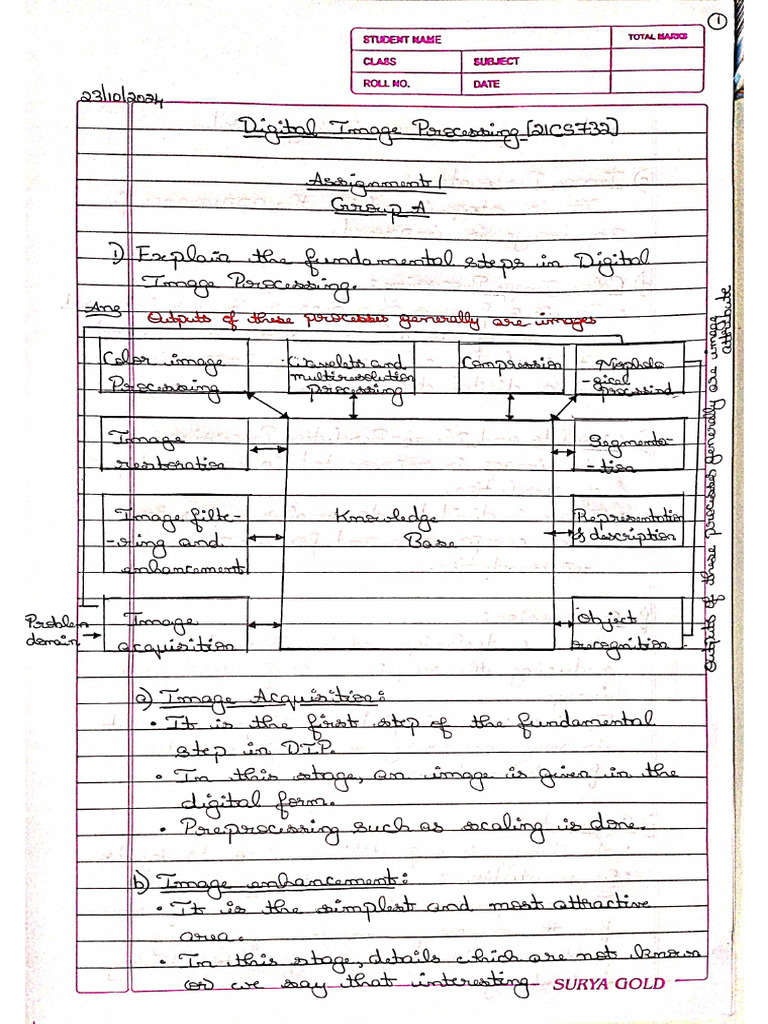 1
STUDENT NAME
TOTAL MARKS
CLASS
SUBJECT
ROLL NO.
DATE
23/10/2024
Digital Image Processing [21CS732]
Assignment 1
Group A
1) Explain the fundamental steps in Digital
Image Processing.
Ans
Outputs of these processes generally are images
Color image
Processing
Wavelets and
multiresolution
processing
Compression
Morpholo
-gical
processing
Image
restoration
Segmenta-
-tion
Image filte-
-ring and
enhancement
Knowledge
Base
Representation
& description
Problem
domain
Image
acquisition
Object
recognition
Outputs of these processes generally are image
attribute
a) Image Acquisition:
• It is the first step of the fundamental
step in DIP.
• In this stage, an image is given in the
digital form.
• Preprocessing such as scaling is done.
b) Image enhancement:
• It is the simplest and most attractive
area.
• In this stage, details which are not known
(or) we say that interesting
SURYA GOLD